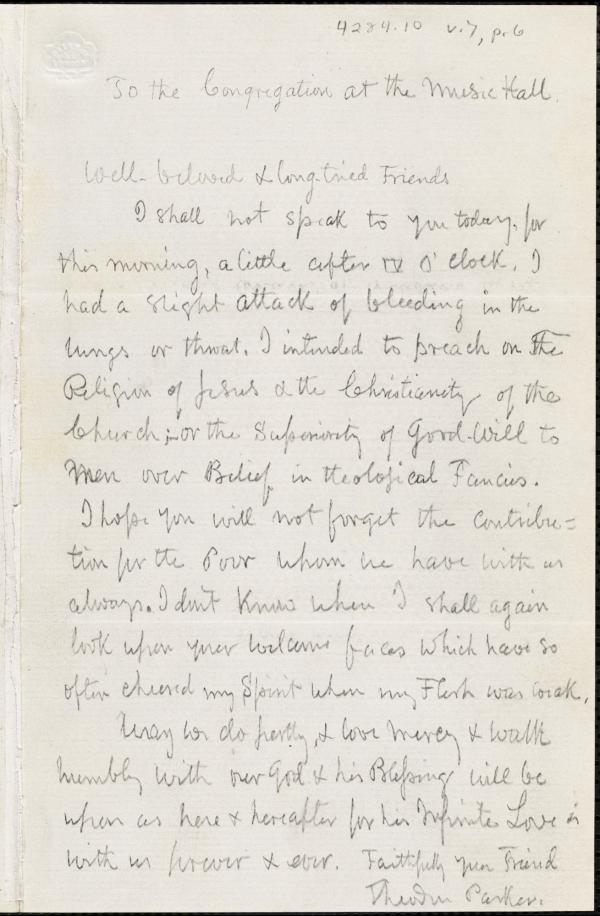 4284.10 v.7, p.6
To the Congregation at the Music Hall.
Well-beloved & long-tried Friends
I shall not speak to you today, for
this morning, a little after IV O'clock, I
had a slight attack of bleeding in the
lungs or throat. I intended to preach on The
Religion of Jesus & the Christianity of the
Church; or the Superiority of Good-Will to
Men over Belief in theological Fancies.
I hope you will not forget the contribu=
tion for the Poor whom we have with us
always. I don't know when I shall again
look upon your welcome faces which have so
often cheered my Spirit when my Flesh was weak.
May we do justly, & love mercy & walk
humbly with our God & his Blessing will be
upon us here & hereafter for his Infinite Love is
with us forever & ever. Faithfully your Friend
Theodore Parker.